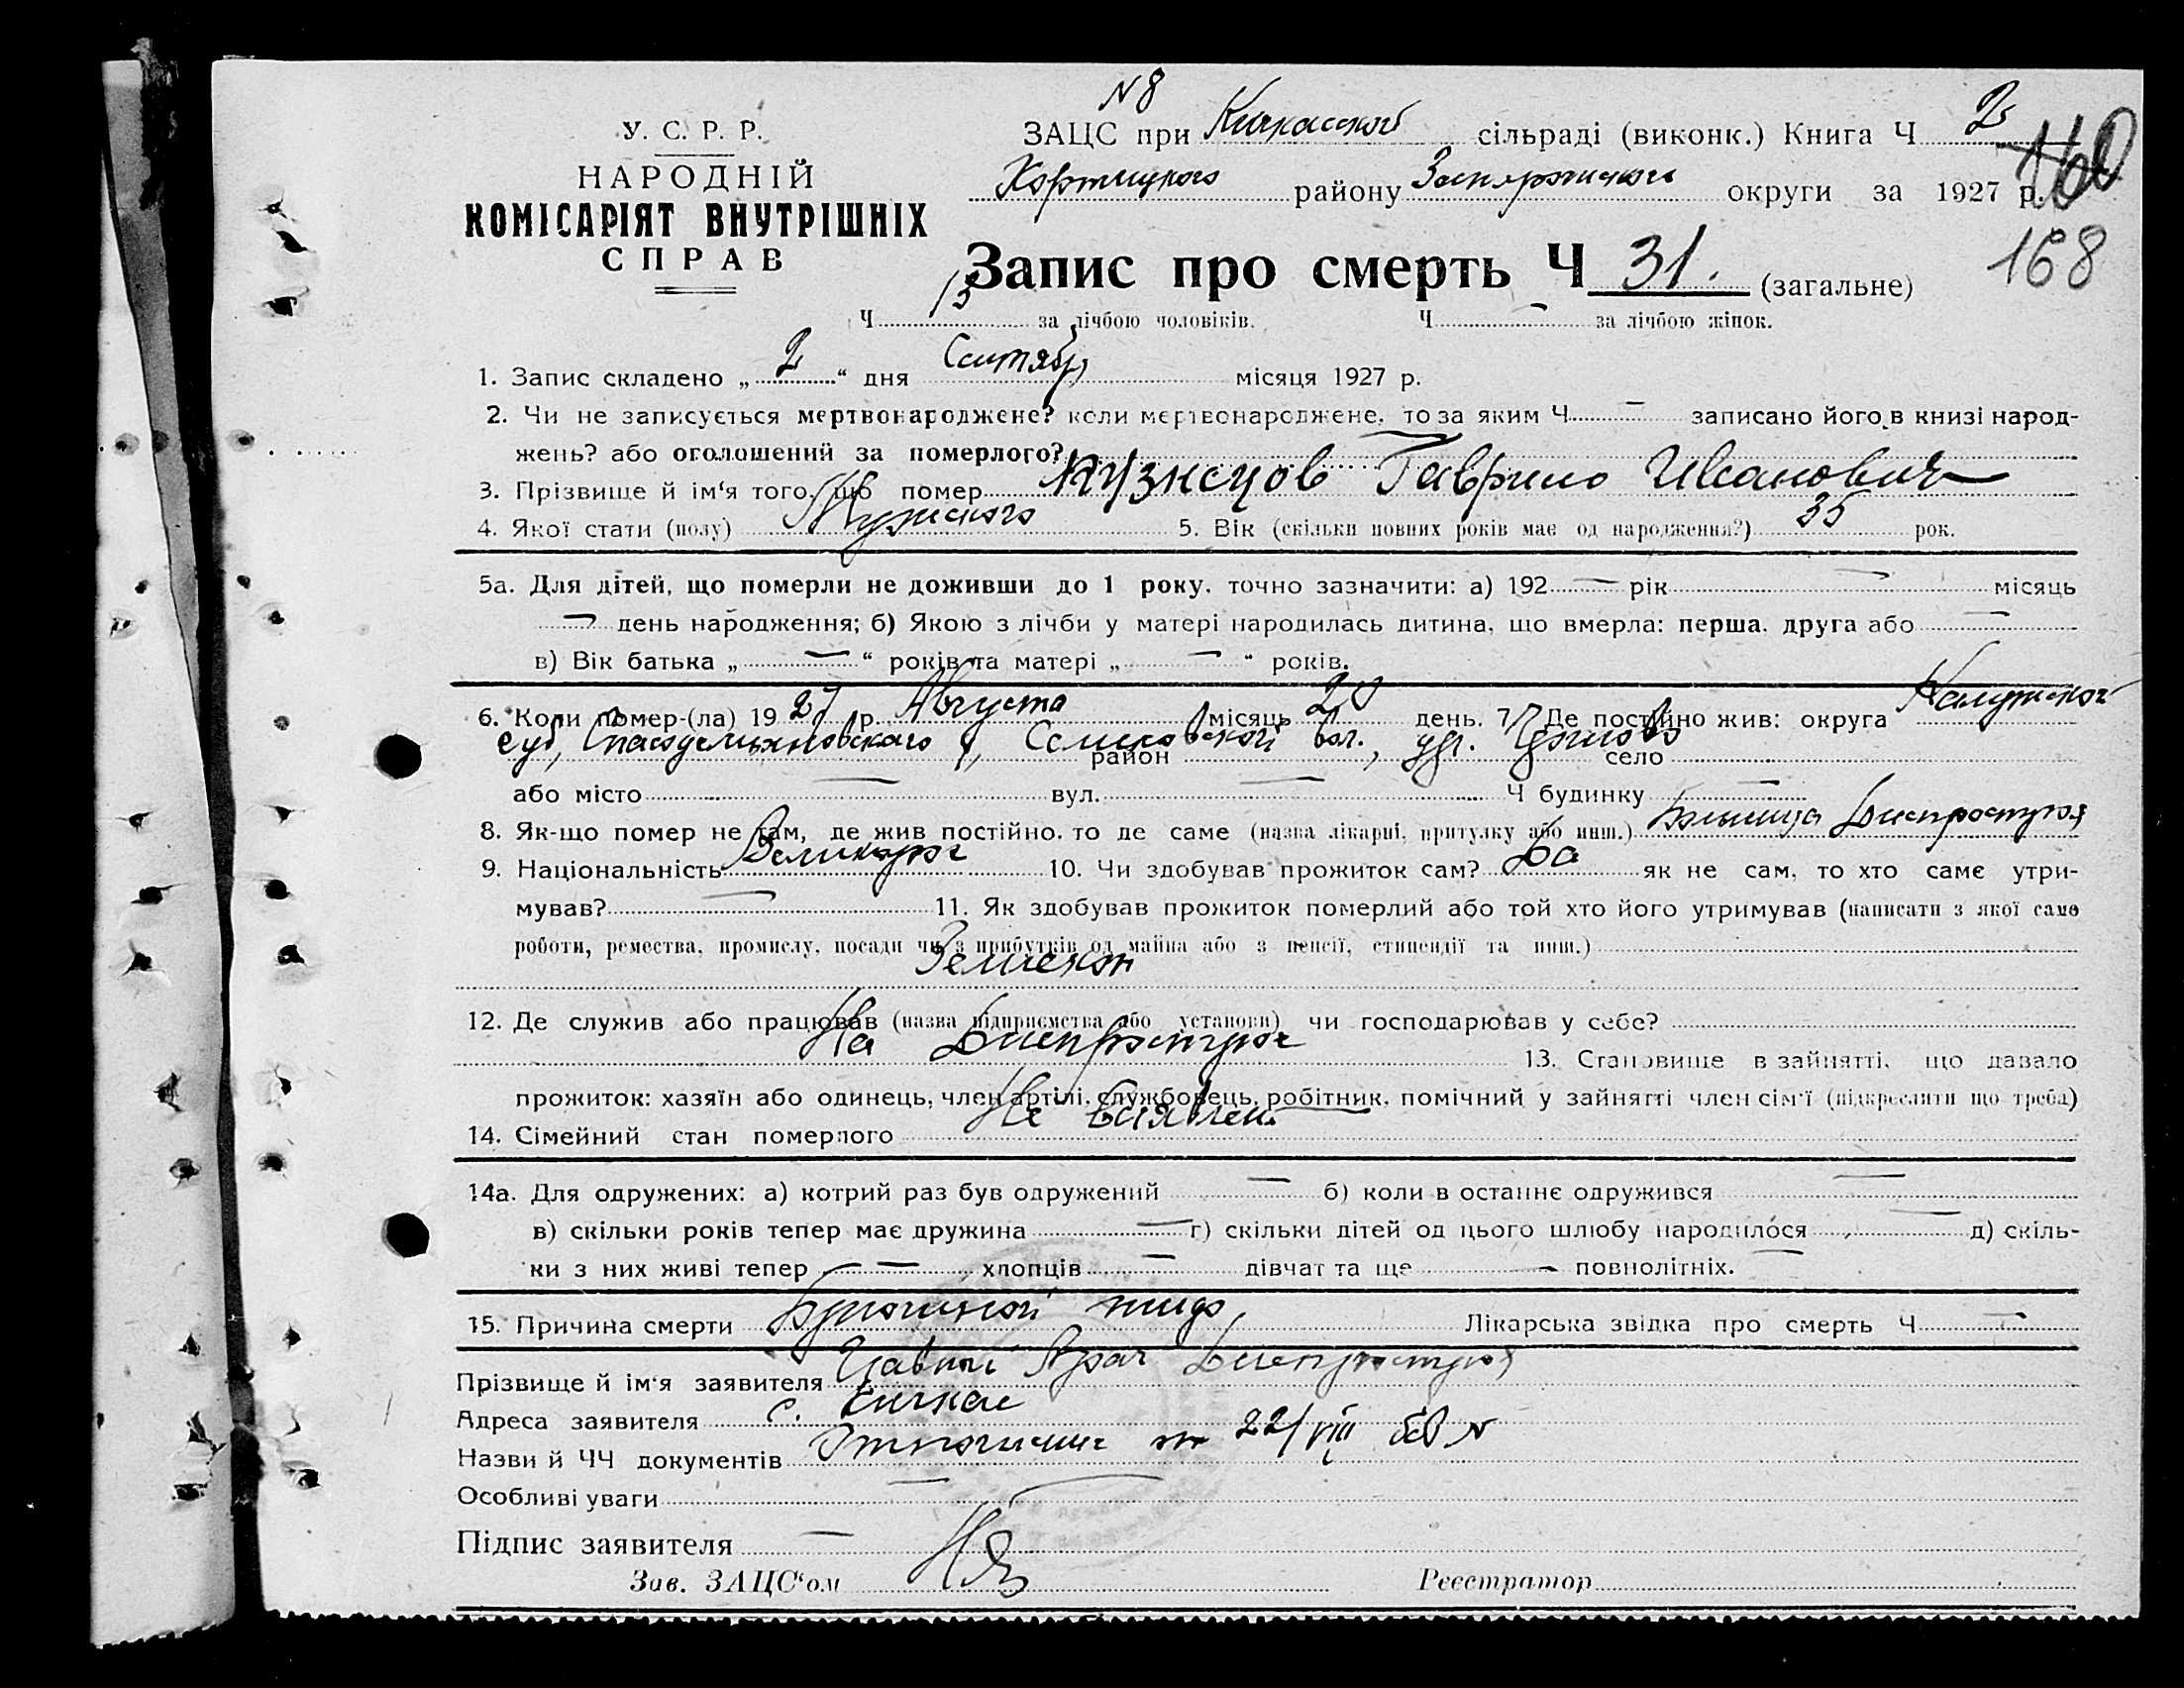 N 8
У. С. Р. Р. ЗАЦС при Кичкасской сільраді (виконк.) Книга Ч 2
160
НАРОДНІЙ Хортицкого району Запорожского округи за 1927 р.
КОМІСАРІЯТ ВНУТРІШНІХ
СПРАВ
Запис про смерть Ч 31. (загальне) 168
Ч 13 за лічбою чоловіків. Ч — за лічбою жінок.
1. Запис складено „ 2 “ дня Сентября місяця 1927 р.
2. Чи не записується мертвонароджене? коли мертвонароджене, то за яким Ч — записано його в книзі народ-
жень? або оголошений за померлого? —
3. Прізвище й ім‘я того, що помер Кузнецов Гаврило Иванович
4. Якої стати (полу) Мужского 5. Вік (скільки повних років має од народження?) 35 рок.
5а. Для дітей, що померли не доживши до 1 року, точно зазначити: а) 192 — рік — місяць
— день народження; б) Якою з лічби у матері народилась дитина, що вмерла: перша, друга або —
в) Вік батька „ — “ років та матері „ — “ років.
6. Коли помер-(ла) 19 27 р. Августа місяць 20 день. 7. Де постійно жив: округа Калужской
губ, Спасодеменовского район вол., село
або місто — вул. — Ч будинку —
8. Як-що помер не там, де жив постійно, то де саме (назва лікарні, притулку або инш.) Больница Днепростроя
9. Національність Великорос 10. Чи здобував прожиток сам? Да як не сам, то хто саме утри-
мував? — 11. Як здобував прожиток померлий або той хто його утримував (написати з якої само
роботи, ремества, промислу, посади чи з прибутків од майна або з пенсії, стипендії та инш.)
Землекоп
12. Де служив або працював (назва підприємства або установи) чи господарював у себе?
На Днепрострое 13. Становище в зайнятті, що давало
прожиток: хазяїн або одинець, член артілі, службовець, робітник, помічний у зайнятті член сім‘ї (підкреслити що треба)
14. Сімейний стан померлого Не выявлен
14а. Для одружених: а) котрий раз був одружений — б) коли в останнє одружився —
в) скільки років тепер має дружина — г) скільки дітей од цього шлюбу народилося — д) скіль-
ки з них живі тепер — хлопців — дівчат та ще — повнолітніх. —
15. Причина смерти Брюшной тиф Лікарська звідка про смерть Ч —
Прізвище й ім‘я заявителя Главный Врач Днепростроя
Адреса заявителя с. Кичкас
Назви й ЧЧ документів Отношение от 22/VIII без N
Особливі уваги —
Підпис заявителя —
Зав. ЗАЦС‘ом Реєстратор